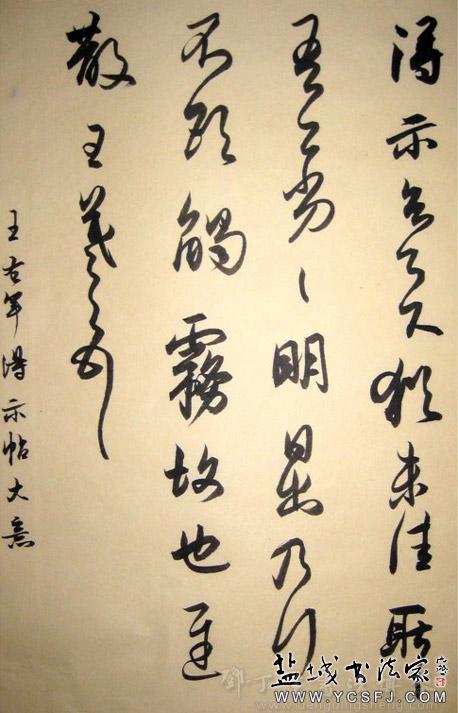 得示知足下猶未佳耿〻
吾亦劣〻明日出乃行
不欲觸霧故也遲
散王羲之頓首
王右軍得示帖大意
盐城书法家
WWW.YCSFJ.COM